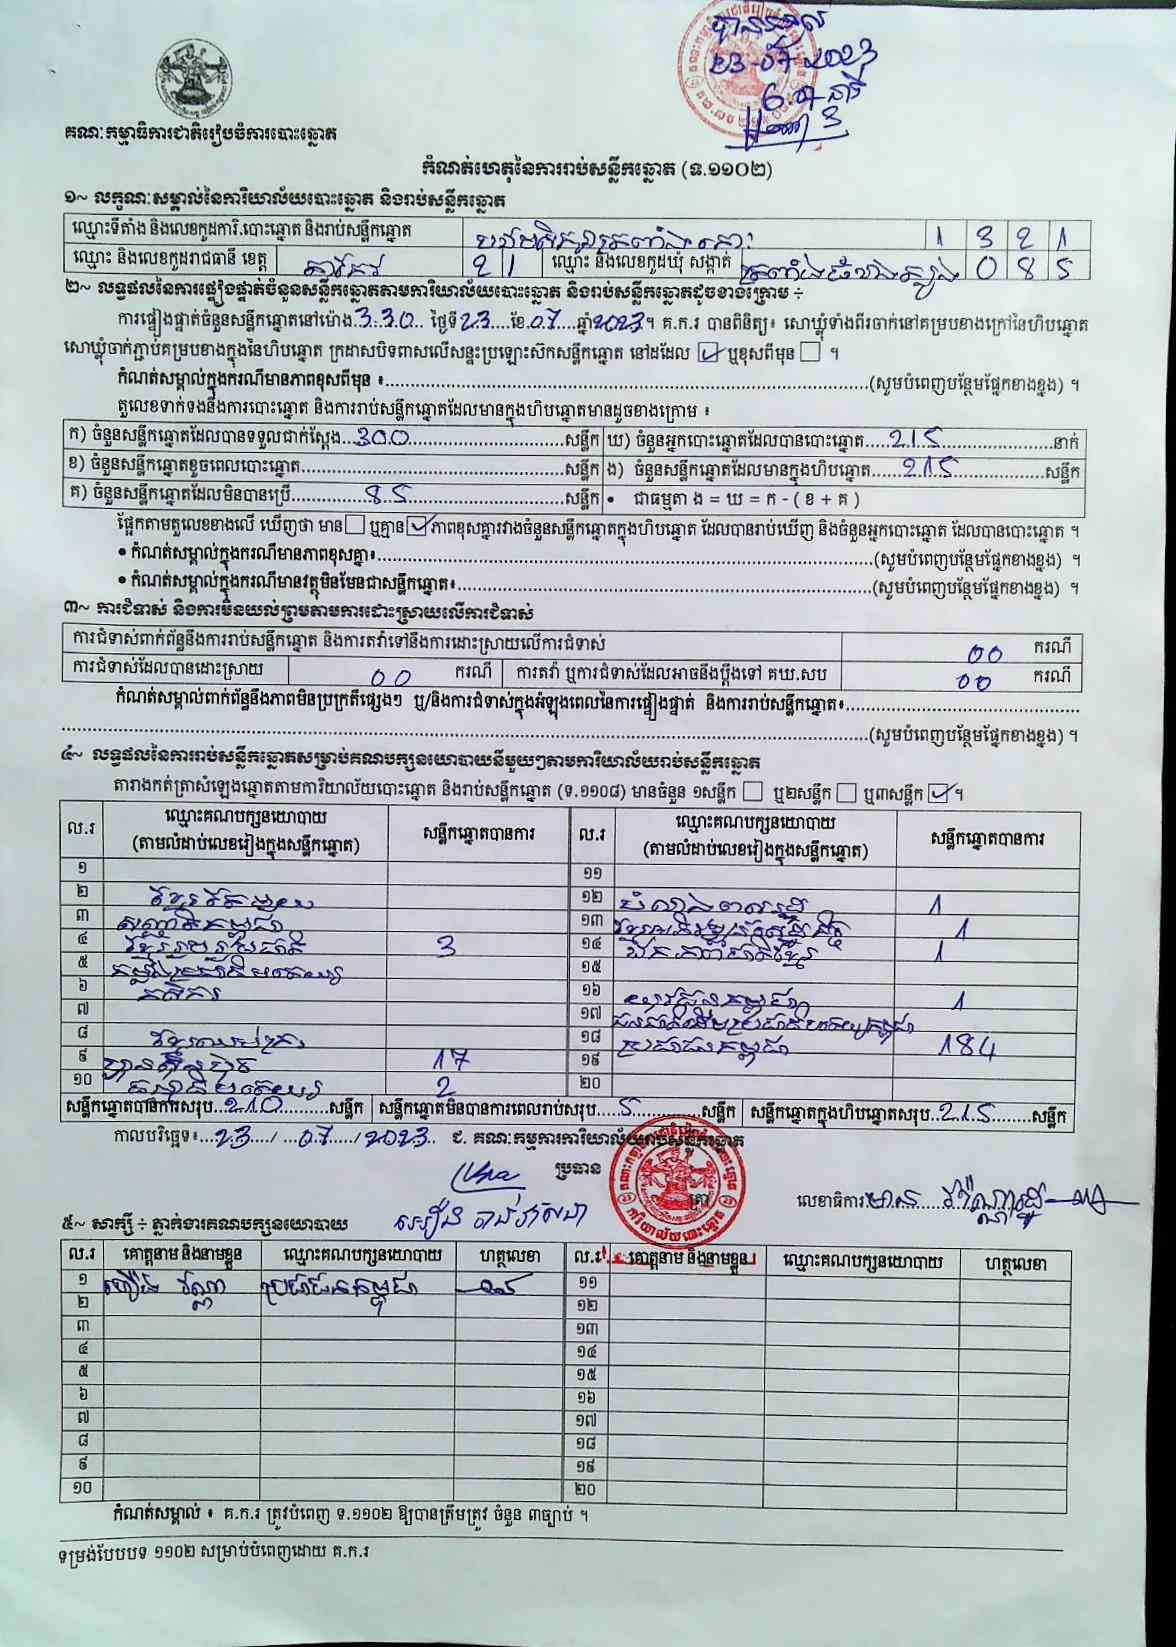 23-07-2023
គណៈកម្មាធិការជាតិរៀបចំការបោះឆ្នោត
កំណត់ហេតុនៃការរាប់សន្លឹកឆ្នោត (ទ.១១០២)
១~ លក្ខណៈសម្គាល់នៃការិយាល័យបោះឆ្នោត និងរាប់សន្លឹកឆ្នោត
ឈ្មោះទីតាំង និងលេខកូដការិ.បោះឆ្នោត និងរាប់សន្លឹកឆ្នោត 1 3 2 1
ឈ្មោះ និងលេខកូដរាជធានី ខេត្ត តាកែវ 2 1 ឈ្មោះ និងលេខកូដឃុំ សង្កាត់ 0 8 5
២~ លទ្ធផលនៃការផ្ទៀងផ្ទាត់ចំនួនសន្លឹកឆ្នោតតាមការិយាល័យបោះឆ្នោត និងរាប់សន្លឹកឆ្នោតដូចខាងក្រោម ÷
ការផ្ទៀងផ្ទាត់ចំនួនសន្លឹកឆ្នោតនៅម៉ោង 3:30 ថ្ងៃទី 23 ខែ 07 ឆ្នាំ 2023 ។ គ.ក.រ បានពិនិត្យ៖ សោឃ្លុំទាំងពីរចាក់នៅគម្របខាងក្រៅនៃហិបឆ្នោត
សោឃ្លុំចាក់ភ្ជាប់គម្របខាងក្នុងនៃហិបឆ្នោត ក្រដាសបិទពាសលើសន្ទះប្រឡោះស៊កសន្លឹកឆ្នោត នៅដដែល ☑ ឬខុសពីមុន ☐ ។
កំណត់សម្គាល់ក្នុងករណីមានភាពខុសពីមុន ៖ (សូមបំពេញបន្ថែមផ្នែកខាងខ្នង) ។
តួលេខទាក់ទងនឹងការបោះឆ្នោត និងការរាប់សន្លឹកឆ្នោតដែលមានក្នុងហិបឆ្នោតមានដូចខាងក្រោម ៖
ក) ចំនួនសន្លឹកឆ្នោតដែលបានទទួលជាក់ស្តែង 300 សន្លឹក ឃ) ចំនួនអ្នកបោះឆ្នោតដែលបានបោះឆ្នោត 215 នាក់
ខ) ចំនួនសន្លឹកឆ្នោតខូចពេលបោះឆ្នោត សន្លឹក ង) ចំនួនសន្លឹកឆ្នោតដែលមានក្នុងហិបឆ្នោត 215 សន្លឹក
គ) ចំនួនសន្លឹកឆ្នោតដែលមិនបានប្រើ 85 សន្លឹក • ជាធម្មតា ង = ឃ = ក - ( ខ + គ )
ផ្អែកតាមតួលេខខាងលើ ឃើញថា មាន ☐ ឬគ្មាន ☑ ភាពខុសគ្នារវាងចំនួនសន្លឹកឆ្នោតក្នុងហិបឆ្នោត ដែលបានរាប់ឃើញ និងចំនួនអ្នកបោះឆ្នោត ដែលបានបោះឆ្នោត ។
• កំណត់សម្គាល់ក្នុងករណីមានភាពខុសគ្នា៖ (សូមបំពេញបន្ថែមផ្នែកខាងខ្នង) ។
• កំណត់សម្គាល់ក្នុងករណីមានវត្ថុមិនមែនជាសន្លឹកឆ្នោត៖ (សូមបំពេញបន្ថែមផ្នែកខាងខ្នង) ។
៣~ ការជំទាស់ និងការមិនយល់ព្រមតាមការដោះស្រាយលើការជំទាស់
ការជំទាស់ពាក់ព័ន្ធនឹងការរាប់សន្លឹកឆ្នោត និងការតវ៉ាទៅនឹងការដោះស្រាយលើការជំទាស់ 00 ករណី
ការជំទាស់ដែលបានដោះស្រាយ 00 ករណី ការតវ៉ា ឬការជំទាស់ដែលអាចនឹងប្តឹងទៅ គឃ.សប 00 ករណី
កំណត់សម្គាល់ពាក់ព័ន្ធនឹងភាពមិនប្រក្រតីផ្សេងៗ ឬ/និងការជំទាស់ក្នុងអំឡុងពេលនៃការផ្ទៀងផ្ទាត់ និងការរាប់សន្លឹកឆ្នោត៖
(សូមបំពេញបន្ថែមផ្នែកខាងខ្នង) ។
៤~ លទ្ធផលនៃការរាប់សន្លឹកឆ្នោតសម្រាប់គណបក្សនយោបាយនីមួយៗតាមការិយាល័យរាប់សន្លឹកឆ្នោត
តារាងកត់ត្រាសំឡេងឆ្នោតតាមការិយាល័យបោះឆ្នោត និងរាប់សន្លឹកឆ្នោត (ទ.១១០៨) មានចំនួន ១សន្លឹក ☐ ឬ២សន្លឹក ☐ ឬ៣សន្លឹក ☑ ។
ល.រ ឈ្មោះគណបក្សនយោបាយ សន្លឹកឆ្នោតបានការ ល.រ ឈ្មោះគណបក្សនយោបាយ សន្លឹកឆ្នោតបានការ
(តាមលំដាប់លេខរៀងក្នុងសន្លឹកឆ្នោត) (តាមលំដាប់លេខរៀងក្នុងសន្លឹកឆ្នោត)
១ ១១
២ ១២ 1
៣ ១៣ 1
៤ 3 ១៤ 1
៥ ១៥
៦ កសិករ ១៦ យុវជនកម្ពុជា 1
៧ ១៧
៨ ១៨ ប្រជាជនកម្ពុជា 184
៩ 17 ១៩
១០ 2 ២០
សន្លឹកឆ្នោតបានការសរុប 210 សន្លឹក សន្លឹកឆ្នោតមិនបានការពេលរាប់សរុប 5 សន្លឹក សន្លឹកឆ្នោតក្នុងហិបឆ្នោតសរុប 215 សន្លឹក
កាលបរិច្ឆេទ៖ 23 / 07 / 2023 ជ. គណៈកម្មការការិយាល័យរាប់សន្លឹកឆ្នោត
ប្រធាន
លេខាធិការ
៥~ សាក្សី ÷ ភ្នាក់ងារគណបក្សនយោបាយ
ល.រ គោត្តនាម និងនាមខ្លួន ឈ្មោះគណបក្សនយោបាយ ហត្ថលេខា ល.រ គោត្តនាម និងនាមខ្លួន ឈ្មោះគណបក្សនយោបាយ ហត្ថលេខា
១ ប្រជាជនកម្ពុជា ១១
២ ១២
៣ ១៣
៤ ១៤
៥ ១៥
៦ ១៦
៧ ១៧
៨ ១៨
៩ ១៩
១០ ២០
កំណត់សម្គាល់ ៖ គ.ក.រ ត្រូវបំពេញ ទ.១១០២ ឱ្យបានត្រឹមត្រូវ ចំនួន ៣ច្បាប់ ។
ទម្រង់បែបបទ ១១០២ សម្រាប់បំពេញដោយ គ.ក.រ